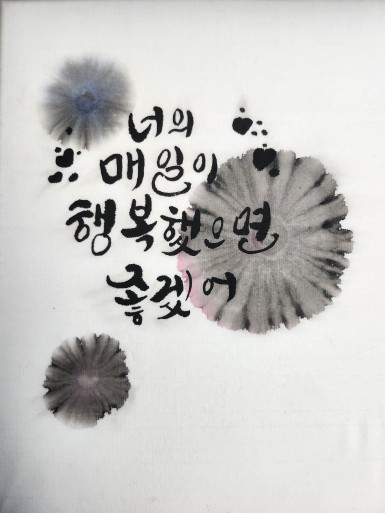 너의
매일이
행복했으면
좋겠어